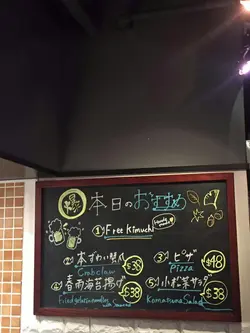 本日のおすすめ
① Free Kimuchi
② 本ずわい蟹爪 $38
Crab claw
③ ピザ $48
Pizza
④ 春雨海苔揚げ $38
Fried gelatin noodles with seaweed
⑤ 小松菜サラダ $38
Komatsuna Salad